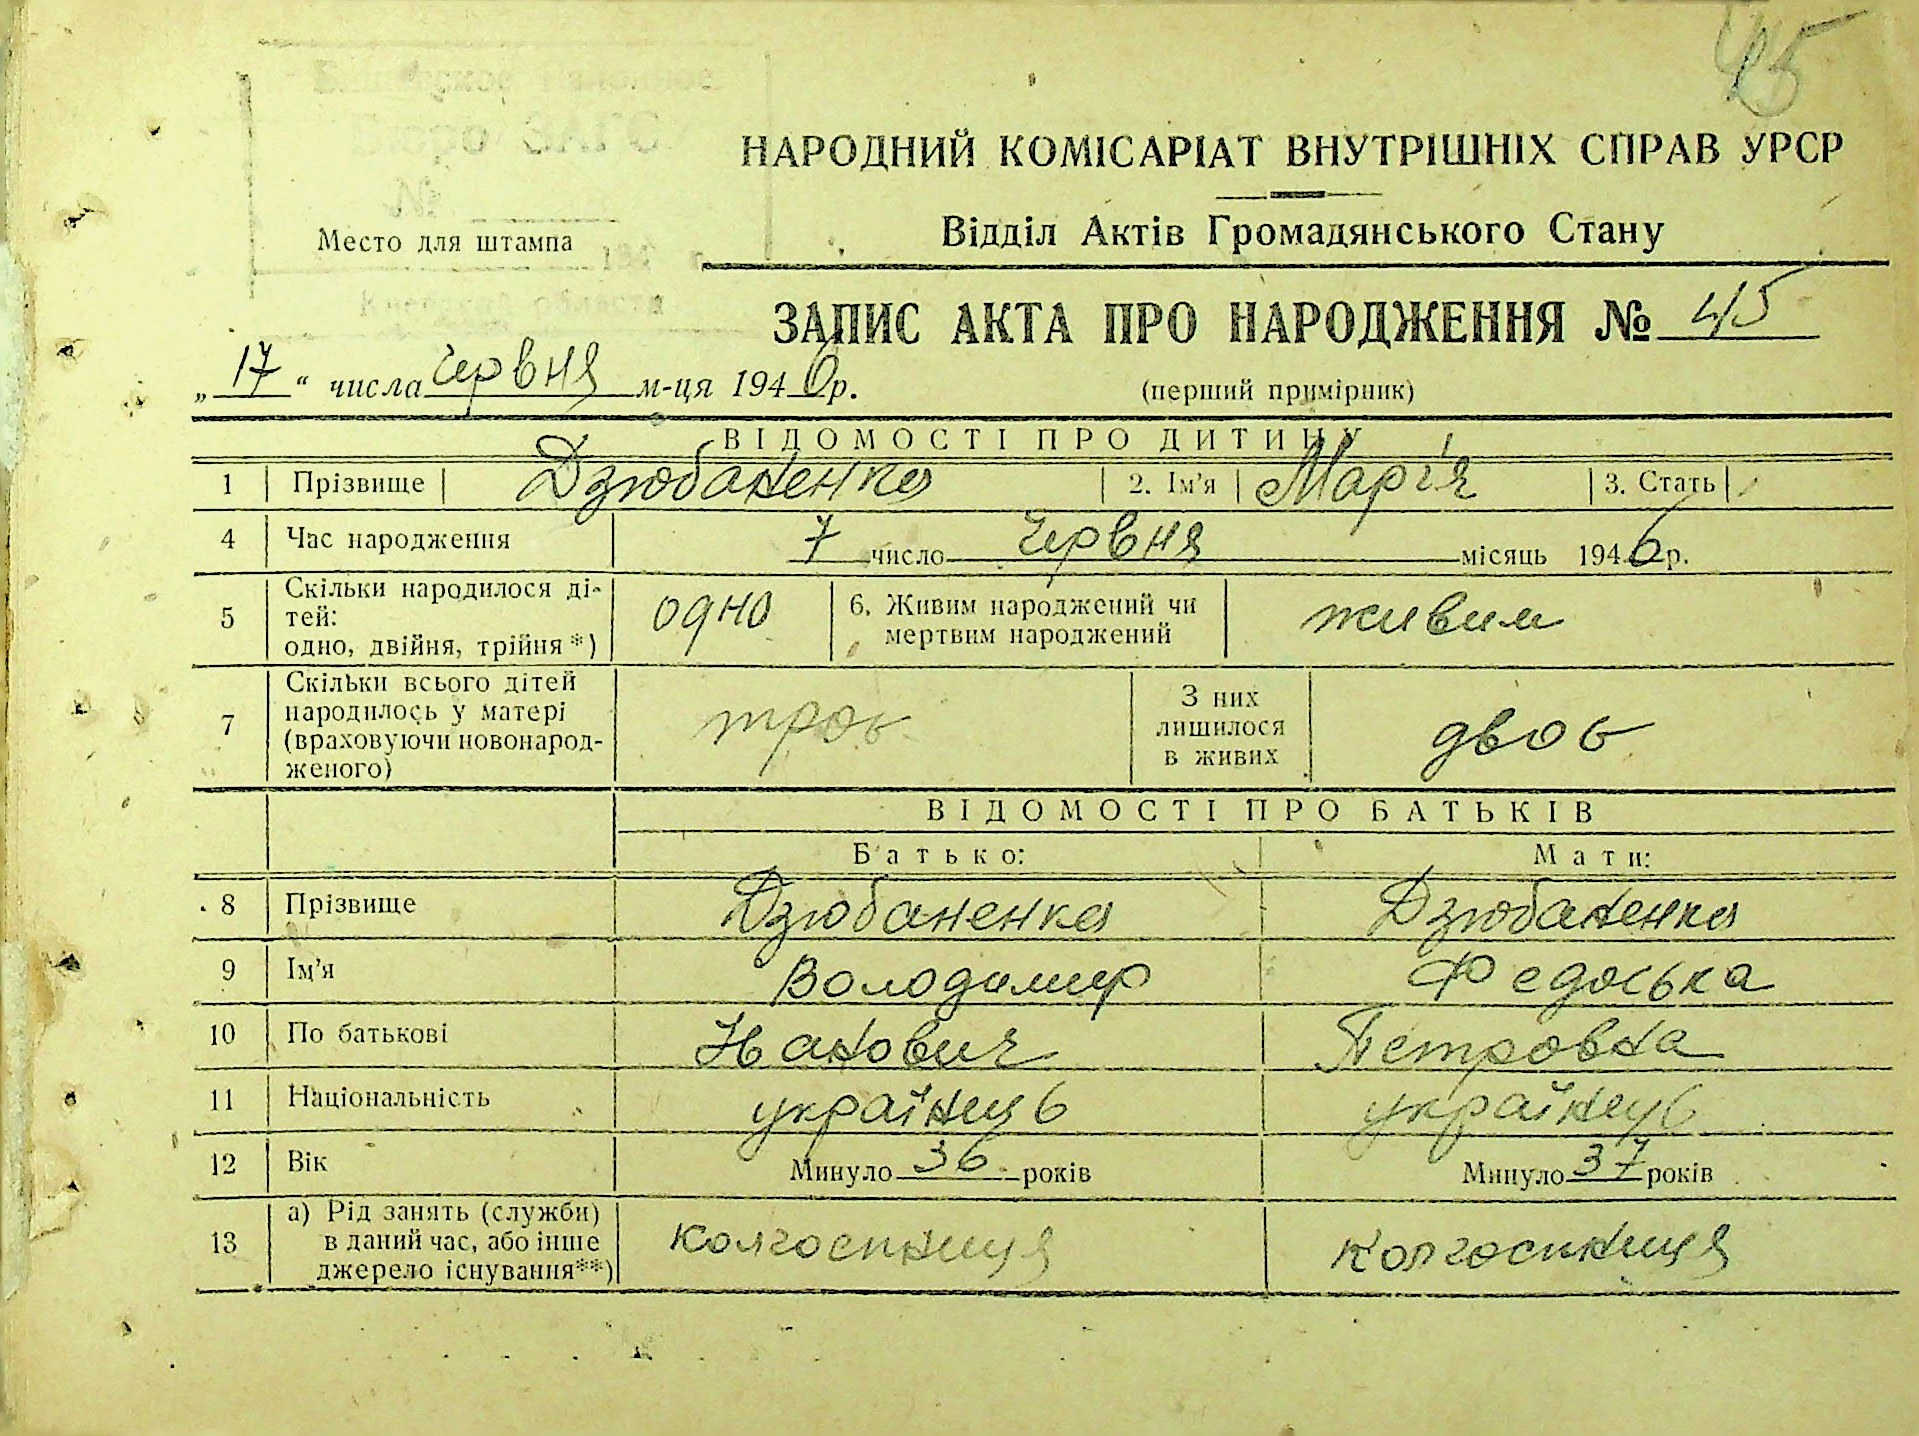 45
НАРОДНИЙ КОМІСАРІАТ ВНУТРІШНІХ СПРАВ УРСР
Место для штампа
Відділ Актів Громадянського Стану
ЗАПИС АКТА ПРО НАРОДЖЕННЯ № 45
„17“ числа червня м-ця 1946 р.
(перший примірник)
ВІДОМОСТІ ПРО ДИТИНУ
1 Прізвище Дзюбаненко 2. Ім'я Марія 3. Стать
4 Час народження 7 число червня місяць 1946 р.
5 Скільки народилося ді-
тей:
одно, двійня, трійня *) одно 6. Живим народжений чи
мертвим народжений живим
7 Скільки всього дітей
народилось у матері
(враховуючи новонарод-
женого) троє З них
лишилося
в живих двоє
ВІДОМОСТІ ПРО БАТЬКІВ
Батько: Мати:
8 Прізвище Дзюбаненко Дзюбаненко
9 Ім'я Володимир Федоська
10 По батькові Петровна
11 Національність українец українец
12 Вік Минуло 36 років Минуло 37 років
13 а) Рід занять (служби)
в даний час, або інше
джерело існування**) колгоспниця колгоспниця